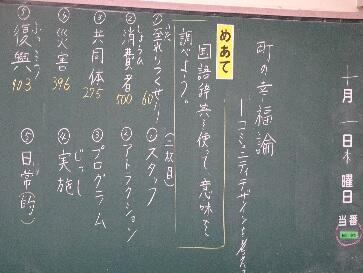 十月一日水曜日
当番
町の幸福論
―コミュニティデザインを考える
めあて
国語辞典を使って、意味を
調べよう。
(二枚目)
①至れりつくせり 60
②消費者 500
③共同体 275
④災害 396
⑤復興 903
①スタッフ
②アトラクション
③プログラム
④実施
⑤日常的